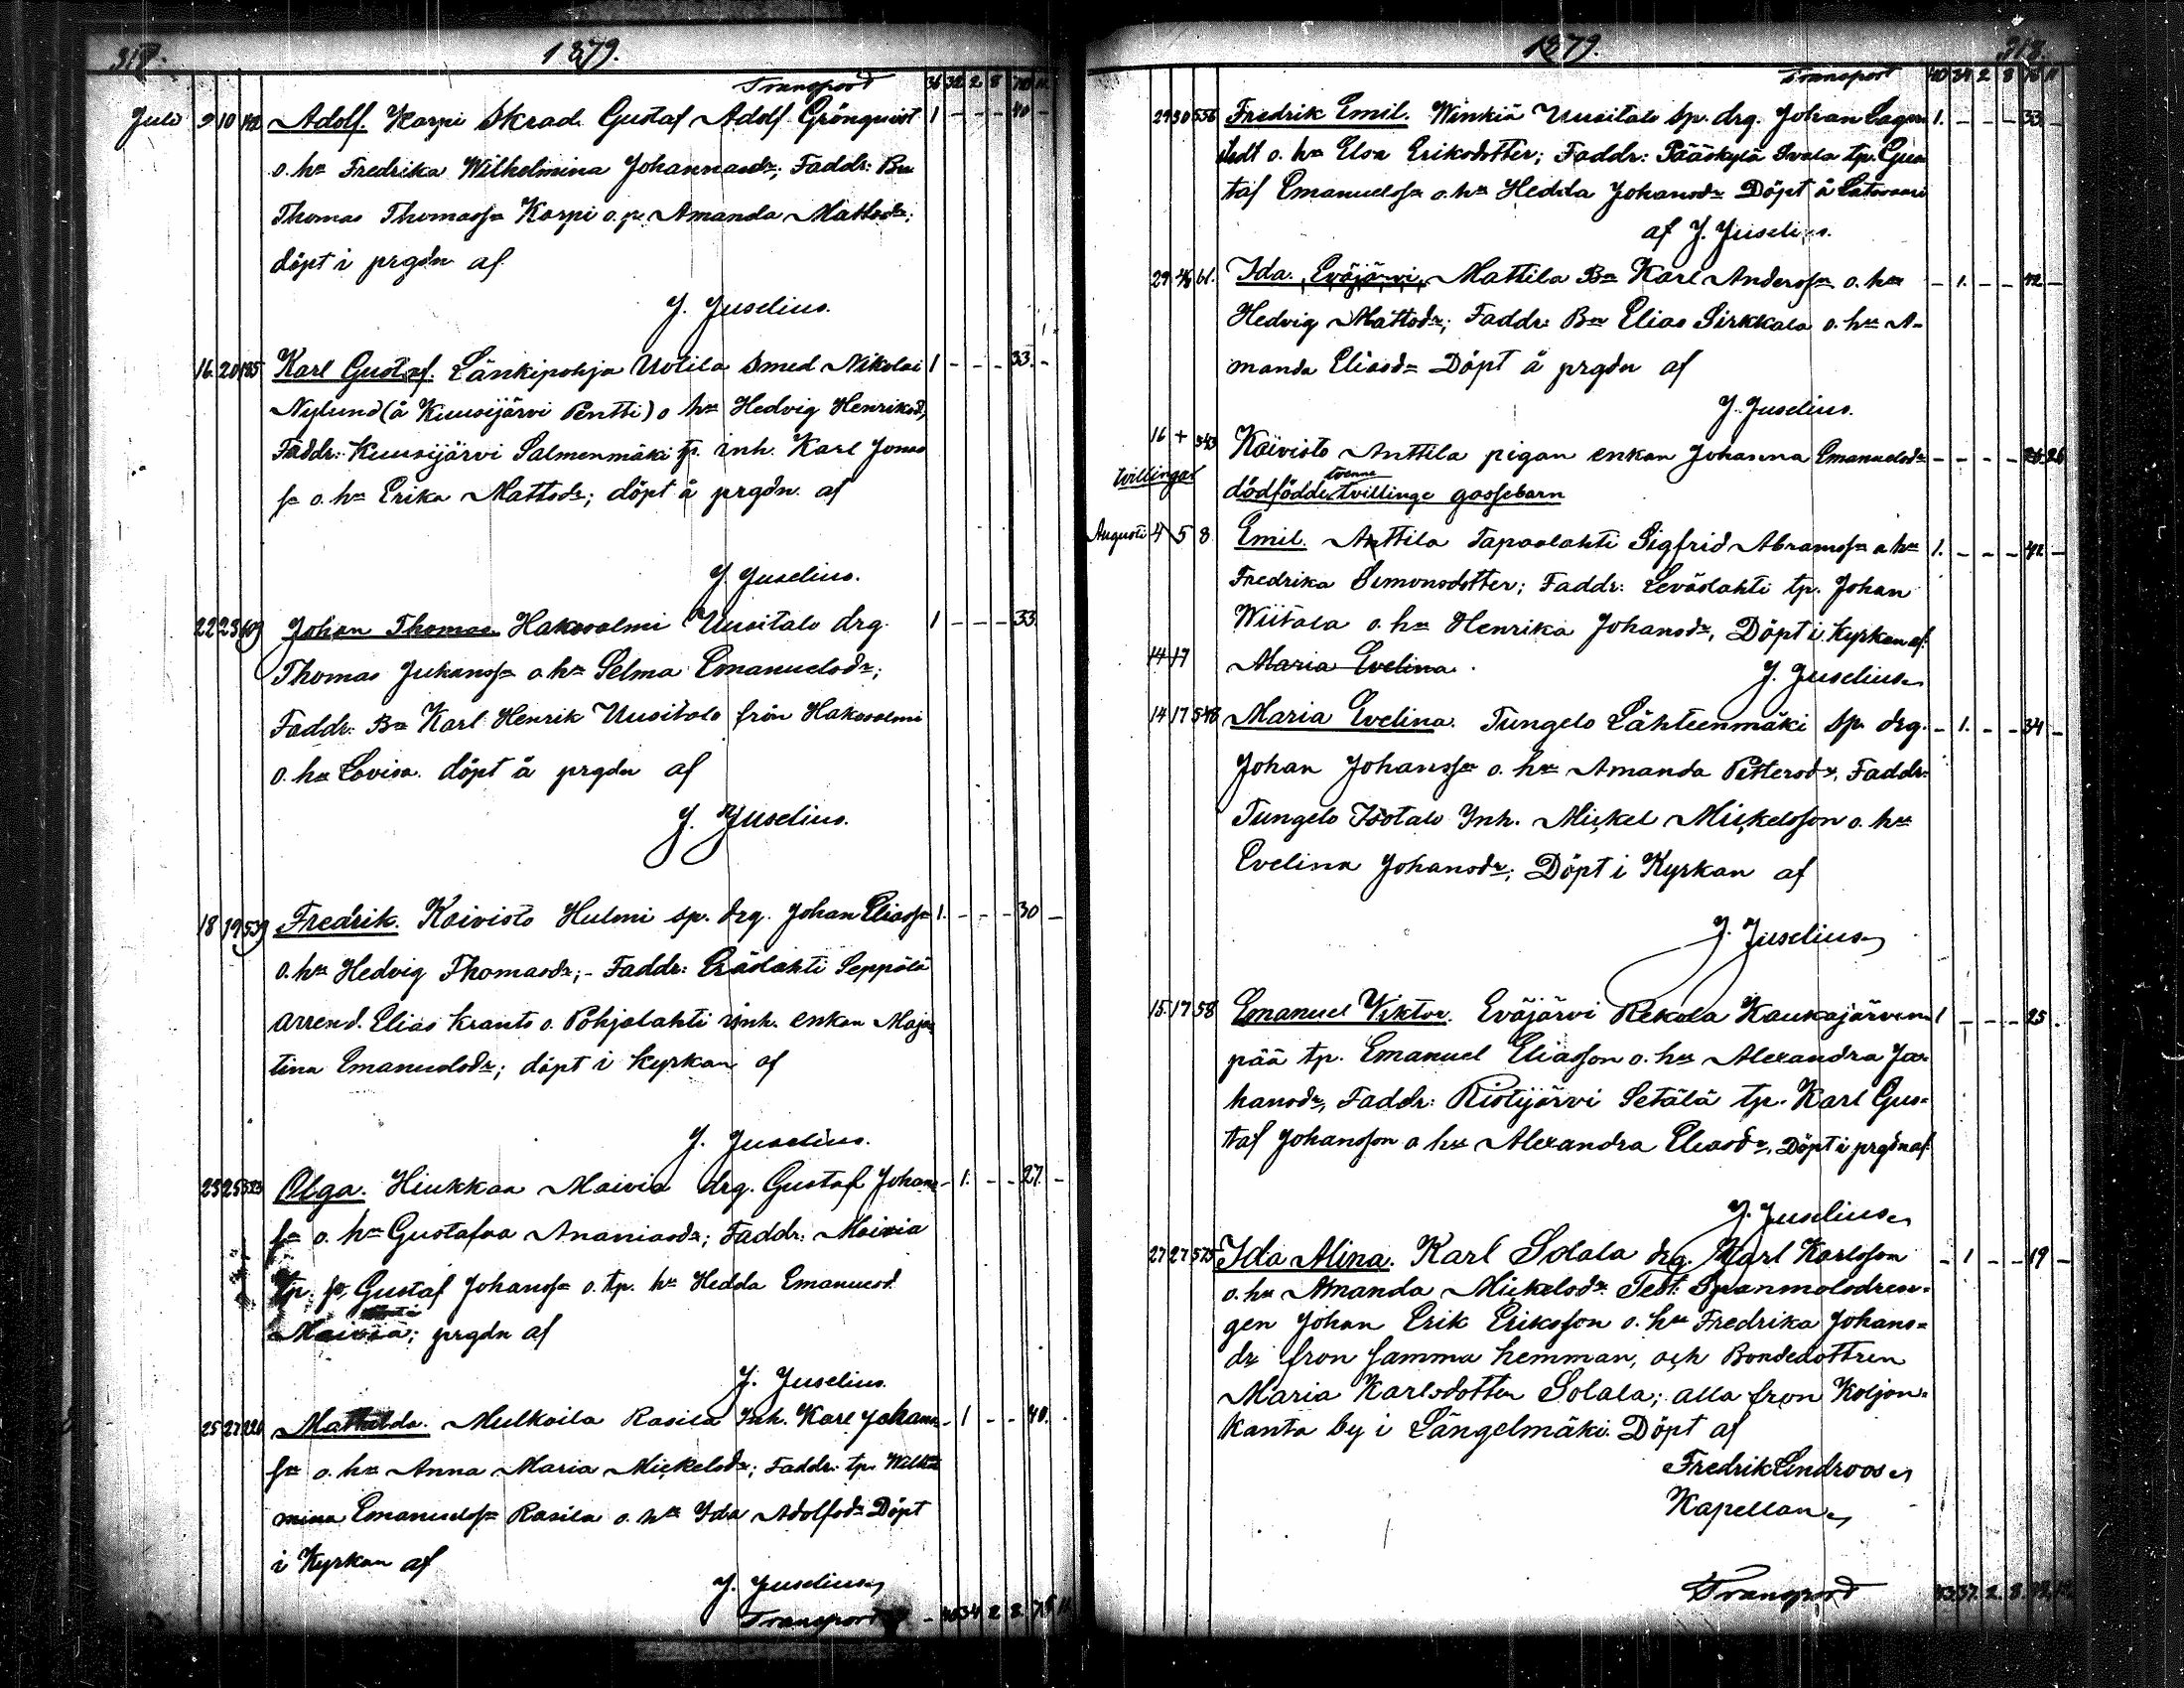 1879.
Transport 36 32 2 8 70 11
Juli 9 10 142 Adolf. Karpi Skrad. Gustaf Adolf Grönqvist 1 - - - 40 -
o. hu Fredrika Wilhelmina Johannesdr; Faddr: Bn
Thomas Thomasson Karpi o. p. Amanda Mattsdr;
döpt i prgdn af
J. Juselius.
16. 20 185 Karl Gustaf. Länkipohja Uotila Smed Nikolai 1 - - - 33. -
Nylund (å Kuusijärvi Pentti) o hu Hedvig Henriksd,
Faddr: Kuusijärvi Salmenmäki tp. inh. Karl Jonas
sn o. hu Erika Mattsdr; döpt å prgdn. af
J. Juselius.
22 23 609 Johan Thomas Hakosalmi Uusitalo drg. 1 - - - 33.
Thomas Juhanssn o hu Selma Emanuelsdr;
Faddr: Bn Karl Henrik Uusitalo från Hakosalmi
o. hu Lovisa. döpt å prgdn af
J. Juselius.
18 19 539 Fredrik. Koivisto Hulmi sp. drg. Johan Eliassn 1. - - - 30 -
o. hu Hedvig Thomasdr; - Faddr: Eräslahti Seppälä
Arrend. Elias Krants o. Pohjalahti inh. enkan Maja
tina Emanuelsdr; döpt i kyrkan af
J. Juselius.
23 25 533 Olga. Hiukkaa Maivia drg. Gustaf Johans - 1. - - 27. -
sn o. hu Gustafva Ananiasdr; Faddr: Maivia
tp. Gustaf Johanssn o. tp. hu Hedda Emanuesd.
Maivia; prgdn af
J. Juselius.
25 27 220 Mathilda. Mulkoila Rasila Inh. Karl Johans - 1 - - 40.
sn o. hu Anna Maria Mickelsdr; Faddr: tp. Wilhel
mina Emanuelssn Rasila o. hu Ida Adolfsdr Döpt
i Kyrkan af
J. Juselius
Transport - 40 34 2 8 75 11
1879. 318.
Transport 40 34 2 8 75 11
29 30 556 Fredrik Emil. Winkiä Uusitalo sp. drg. Johan Lager 1. - - - 33 -
stedt o. hu Elsa Eriksdotter; Faddr: Pääskylä Svala tp. Gus
taf Emanuelssn o. hu Hedda Johansdr Döpt å
af J. Juselius.
29 61. Ida. Eväjärvi Mattila Bn Karl Anderssn o. hu - 1. - - 42 -
Hedvig Mattsdr; Faddr: Bn Elias Sirkkala o. hu A-
manda Eliasdr Döpt å prgdn af
J. Juselius.
16 + 543 Koivisto Anttila pigan enkan Johanna Emanuelsdr - - - - 26. 26
tvillingar
tvenne
dödfödde tvillinge gossebarn
Augusti 4 5 8 Emil. Anttila Tapaslahti Sigfrid Abramssn o hu 1. - - - 42 -
Fredrika Simonsdotter; Faddr: Leväslahti tp. Johan
Wiitala o. hu Henrika Johansdr, Döpt i Kyrkan af
14 17 Maria Evelina.
J. Juselius
14 17 548 Maria Evelina. Tungelo Lähteenmäki sp. drg. - 1. - - 34 -
Johan Johanssn o. hu Amanda Pettersdr. Faddr:
Tungelo Isotalo Inh. Mickel Mickelsson o. hu
Evelina Johansdr; Döpt i Kyrkan af
J. Juselius
15. 17 58 Emanuel Viktor. Eväjärvi Rekola Kaukajärven 1 - - - 25.
pää tp. Emanuel Eliasson o. hu Alexandra Jo-
hansdr, Faddr: Ristijärvi Setälä tp. Karl Gus-
taf Johansson o hu Alexandra Eliasdr, Döpt i prgdn af
J. Juselius
27 27 575 Ida Alina. Karl Solala drg. Karl Karlsson - 1 - - 19 -
o. hu Amanda Mickelsdr Test: Spanmolsdren-
gen Johan Erik Eriksson o. hu Fredrika Johans-
dr fron samma hemman, och Bondedottren
Maria Karlsdotter Solala; alla fron Koljon-
kanta by i Längelmäki. Döpt af
Fredrik Lindroos
Kapellan
Transport 43 37. 2. 8. 79. 12